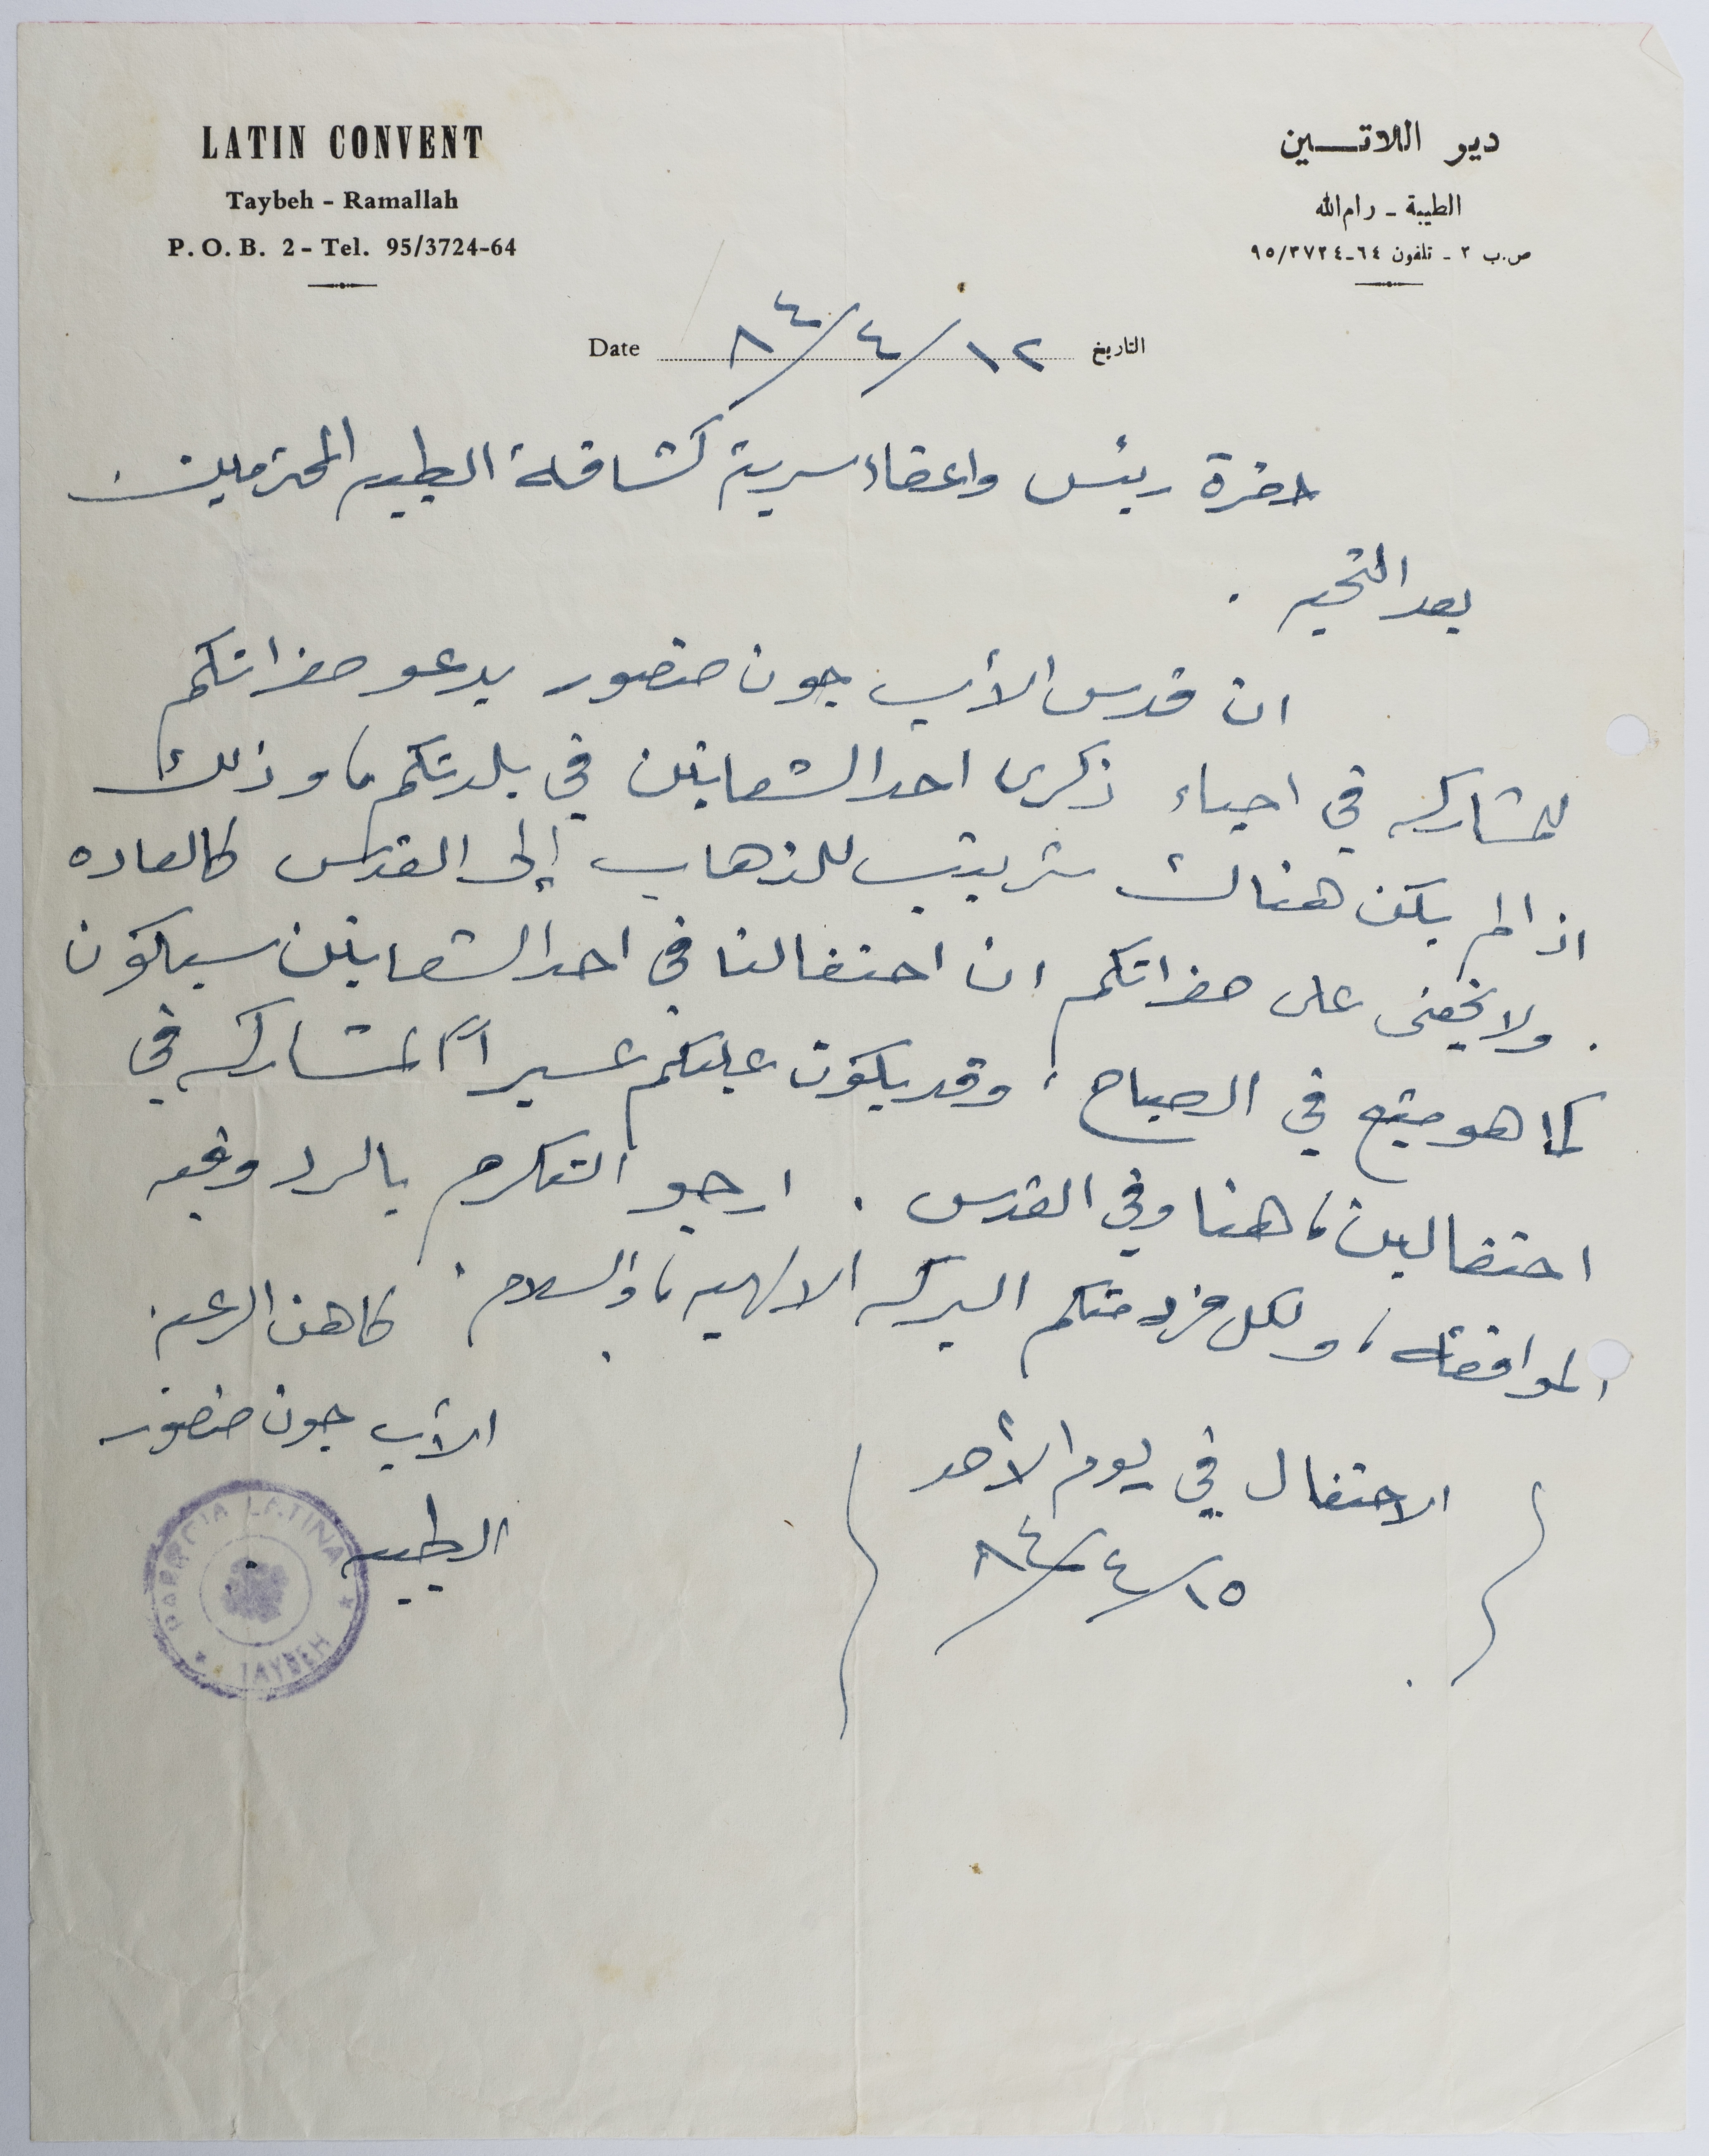 LATIN CONVENT
Taybeh - Ramallah
P. O. B. 2 - Tel. 95/3724-64
دير اللاتـــين
الطيبة - رام الله
ص.ب ٢ - تلفون ٦٤-٩٥/٣٧٢٤
Date ١٢/٤/٨٤ التاريخ
حضرة رئيس واعضاء سرية كشافة الطيبه المحترمين
بعد التحيه .
ان قدس الأب جون منصور يدعو حضراتكم
للمشاركه في احياء ذكرى احد الشعانين في بلدتكم، وذلك
اذا لم يكن هناك ترتيب للذهاب إلى القدس كالعاده
. ولا يخفى على حضراتكم ان احتفالنا في احد الشعانين سيكون
كما هو متبع في الصباح، وقد يكون عليكم عسيراً المشاركه في
احتفالين، هنا وفي القدس . ارجو التكرم بالرد وفيه
الموافقه، ولكل فرد منكم البركه الالهيه، والسلام .
كاهن الرعيه
الأب جون منصور
الطيبه .
(الاحتفال في يوم الأحد
١٥/٤/٨٤)
PARROCIA LATINA
TAYBEH